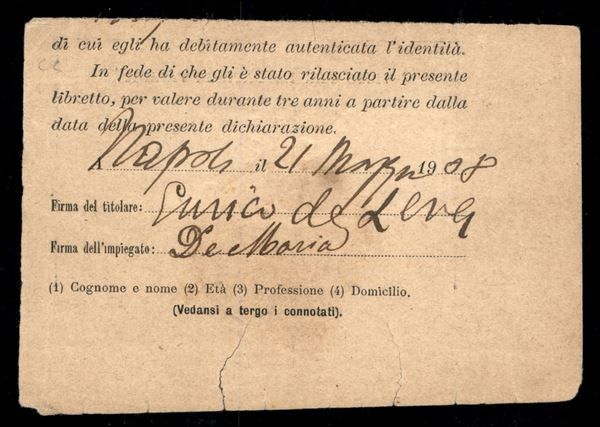 di cui egli ha debitamente autenticata l'identità.
In fede di che gli è stato rilasciato il presente
libretto, per valere durante tre anni a partire dalla
data della presente dichiarazione.
A Napoli il 21 Marzo 1908
Firma del titolare: Enrico de Leva
Firma dell'impiegato: De Maria
(1) Cognome e nome (2) Età (3) Professione (4) Domicilio.
(Vedansi a tergo i connotati).